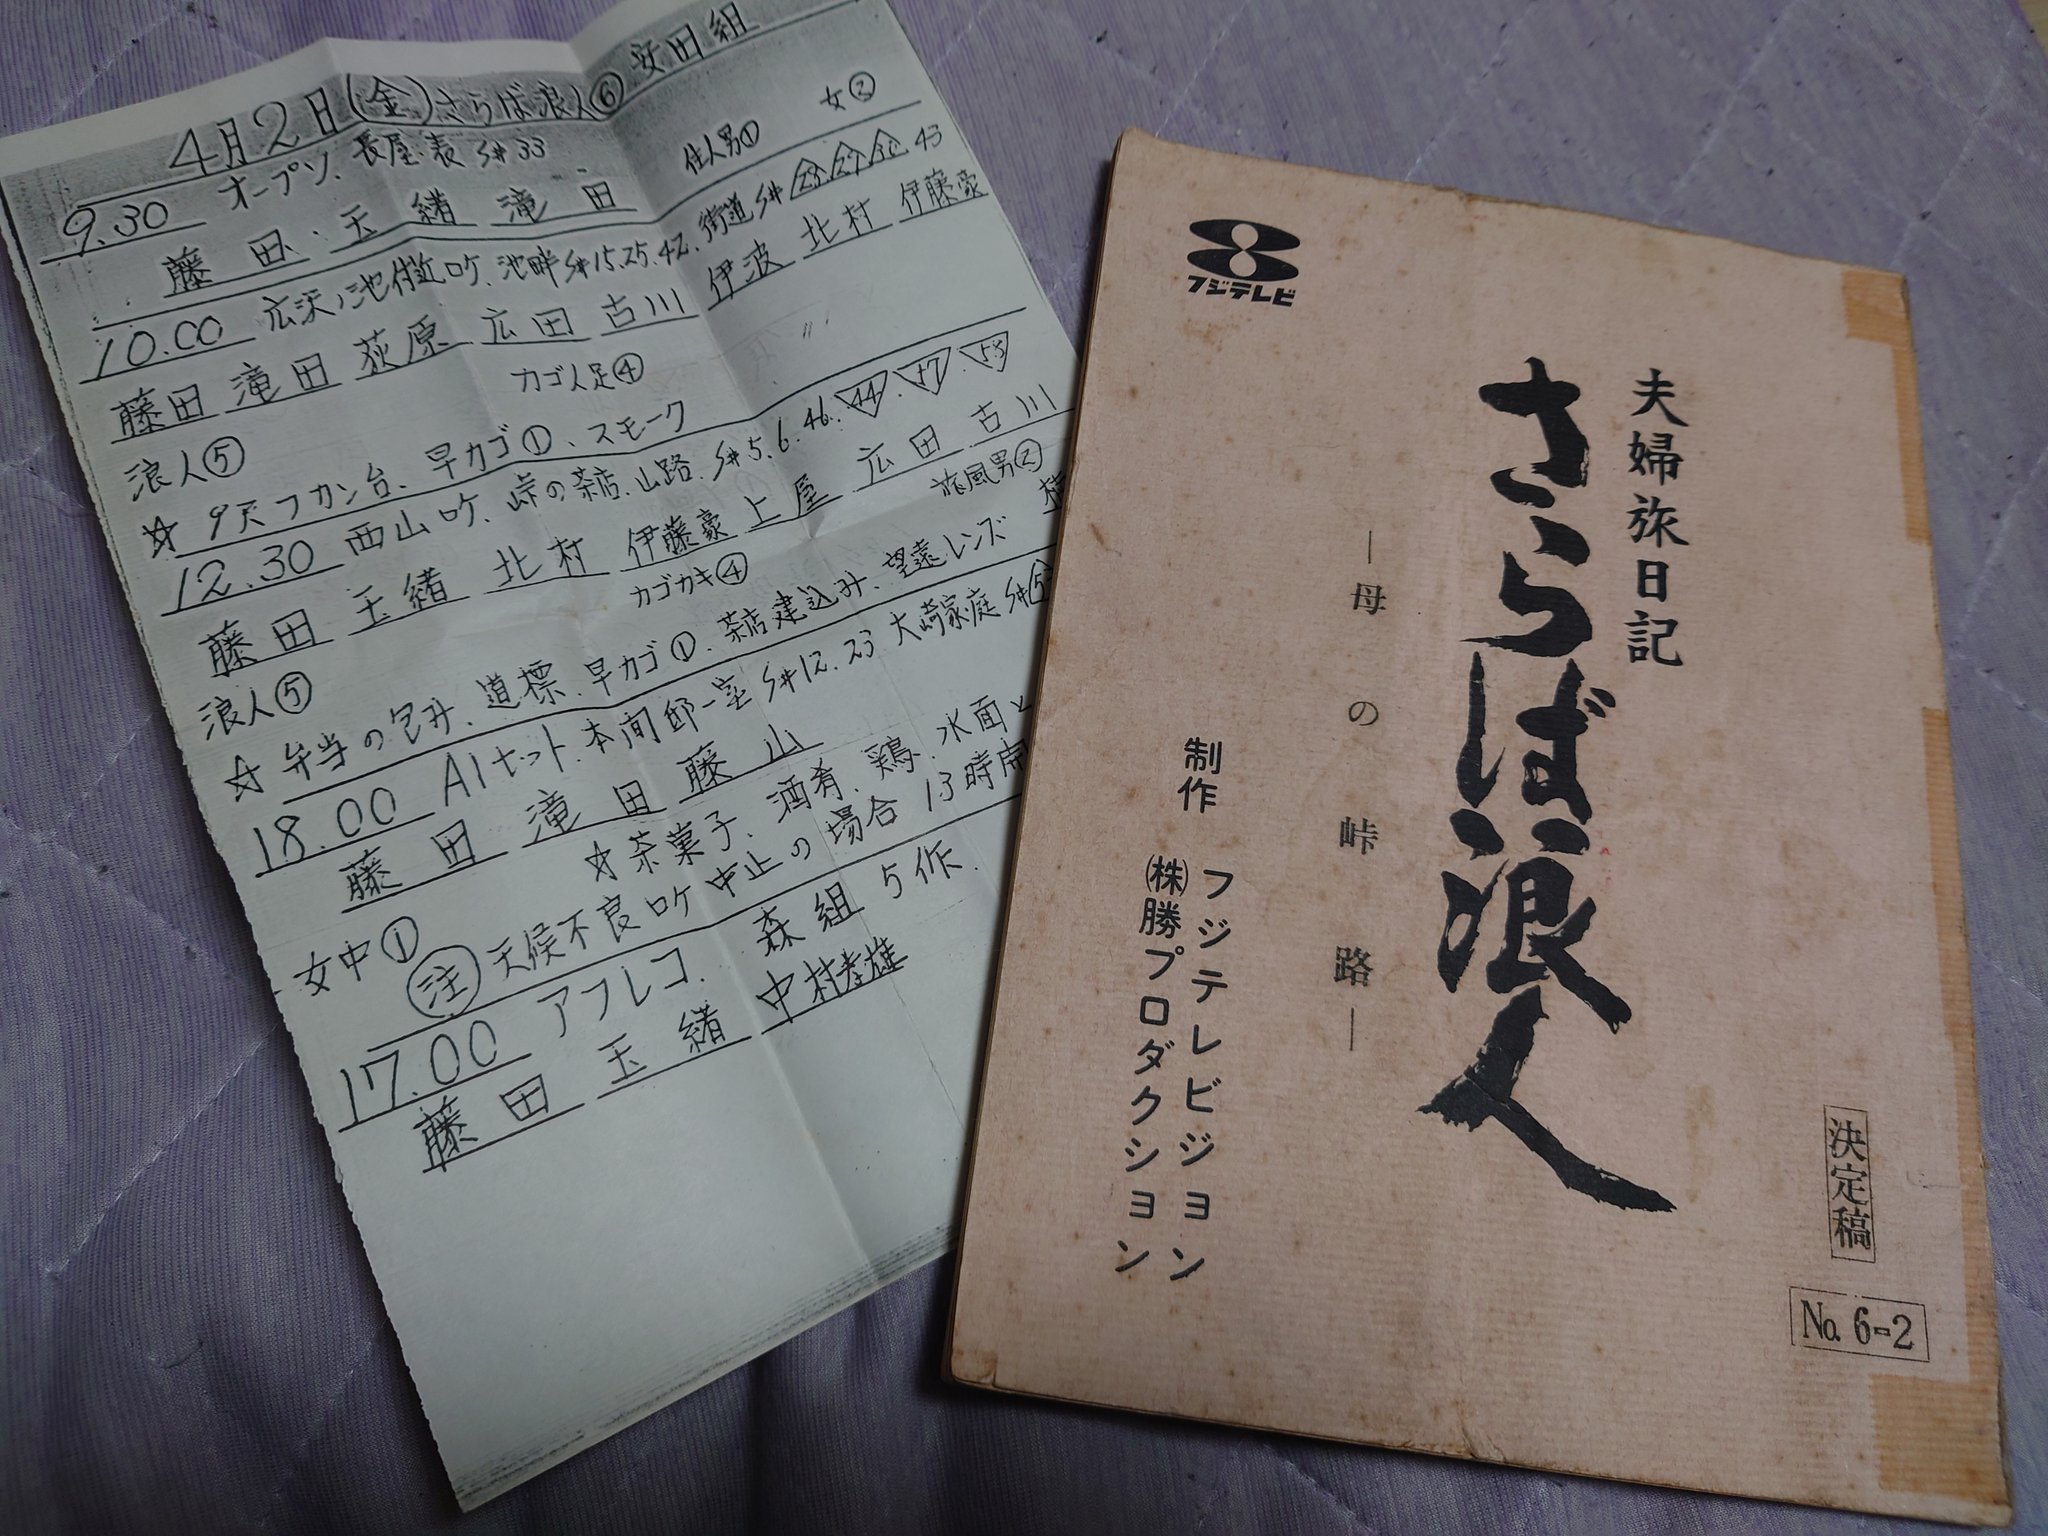 4月2日(金)さらば浪人⑥ 安田組
9.30 オープン、長屋・表 S#33 住人男① 女②
藤田 玉緒 滝田
10.00 広沢ノ池付近ロケ、池畔S#15.25.42. 街道S# 43
藤田 滝田 荻原 広田 古川 伊波 北村 伊藤豪
浪人⑤ カゴ人足④
☆ 9尺フカン台、早カゴ①、スモーク
12.30 西山ロケ、峠の茶店、山路、S#5.6.46. 44. 57. 58
藤田 玉緒 北村 伊藤豪 土屋 広田 古川
浪人⑤ カゴカキ④ 旅風男②
☆ 弁当の包み、道標、早カゴ①、茶店建込み、望遠レンズ
18.00 A1セット、本間邸一室 S#12.23 大崎家庭 S#
藤田 滝田 藤山
女中① ☆茶菓子、酒肴、鶏、水面と
注 天候不良ロケ中止の場合 13時開
17.00 アフレコ. 森組 5作.
藤田 玉緒 中村孝雄
フジテレビ
夫婦旅日記
さらば浪人
―母の峠路―
制作 フジテレビジョン
㈱勝プロダクション
決定稿
No. 6-2